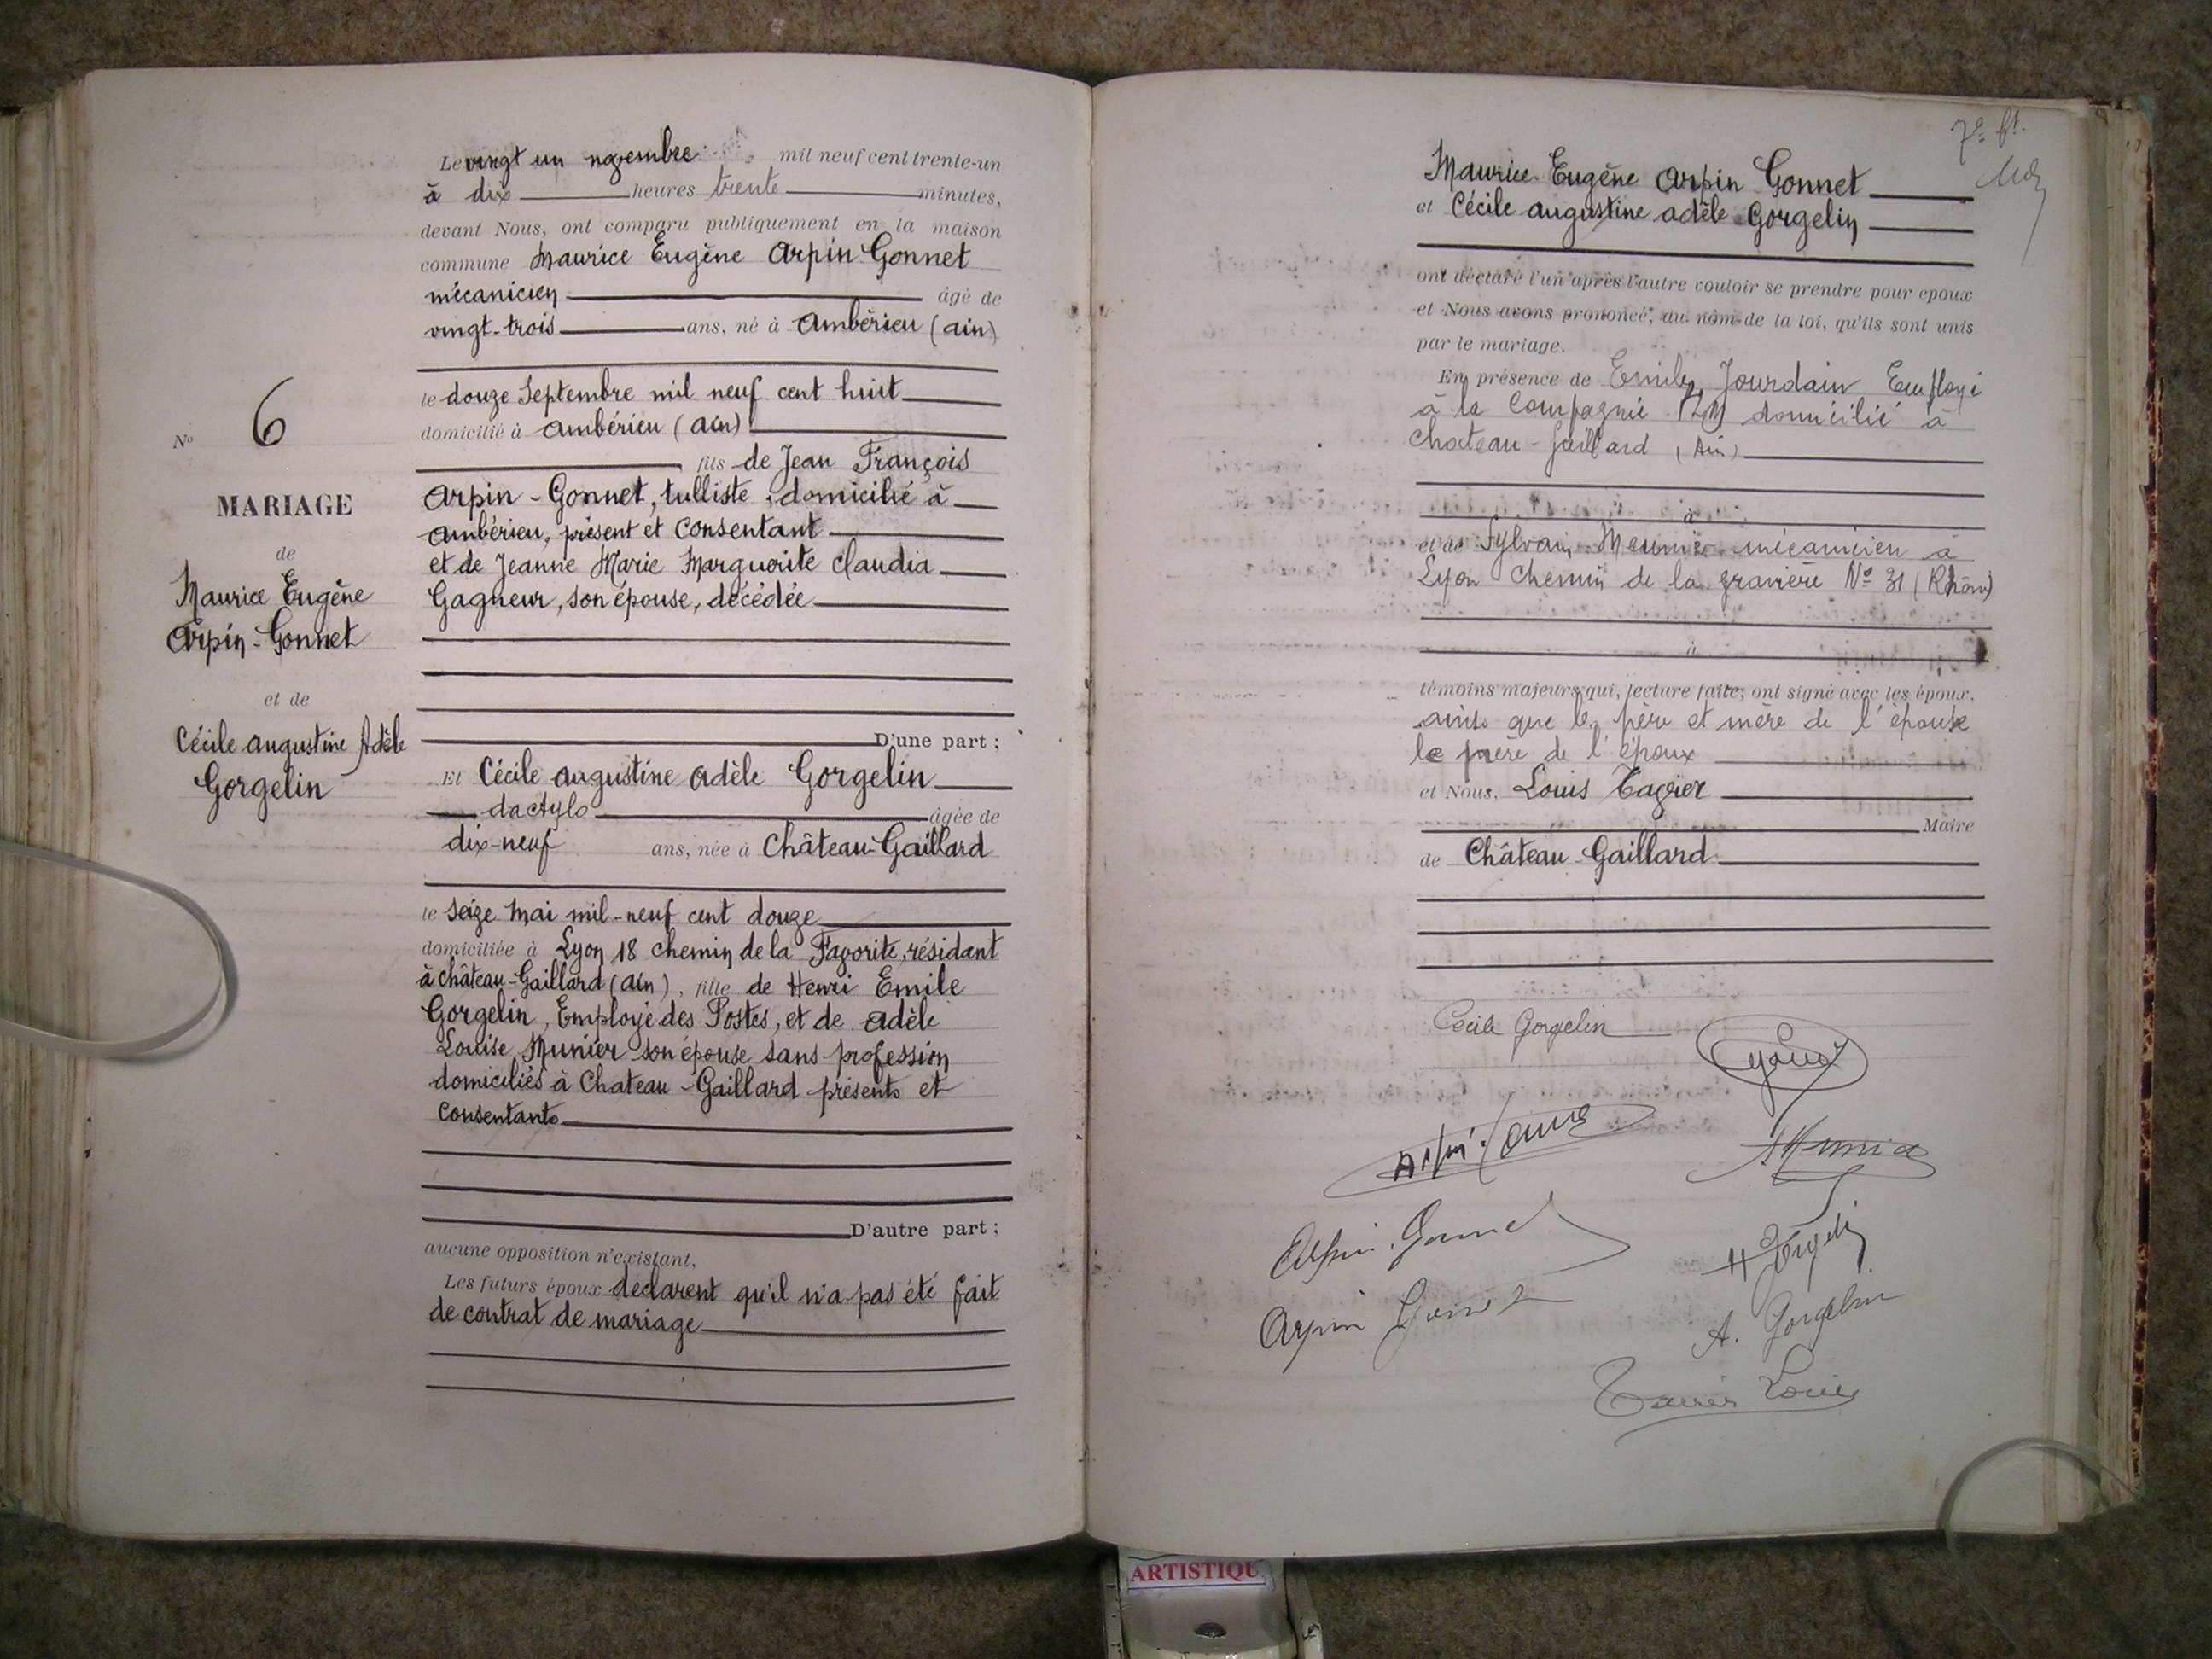 Le vingt un novembre mil neuf cent trente-un
à dix heures trente minutes,
devant Nous, ont comparu publiquement en la maison
commune Maurice Eugène Arpin Gonnet
mécanicien âgé de
vingt-trois ans, né à Ambérieu (Ain)
le douze Septembre mil neuf cent huit
domicilié à Ambérieu (Ain)
fils de Jean François
Arpin-Gonnet, tulliste, domicilié à
Ambérieu, présent et consentant
et de Jeanne Marie Marguerite Claudia
Gagneur, son épouse, décédée
D'une part ;
Et Cécile Augustine Adèle Gorgelin
dactylo âgée de
dix-neuf ans, née à Château-Gaillard
le seize Mai mil-neuf cent douze
domiciliée à Lyon 18 chemin de la Favorite, résidant
à château-Gaillard (Ain), fille de Henri Emile
Gorgelin, Employé des Postes, et de Adèle
Louise Munier son épouse sans profession
domiciliés à Chateau-Gaillard présents et
consentants
D'autre part ;
aucune opposition n'existant,
Les futurs époux déclarent qu'il n'a pas été fait
de contrat de mariage
No 6
MARIAGE
de
Maurice Eugène
Arpin-Gonnet
et de
Cécile Augustine Adèle
Gorgelin
7e ft.
Maurice Eugène Arpin Gonnet
et Cécile Augustine Adèle Gorgelin
ont déclaré l'un après l'autre vouloir se prendre pour epoux
et Nous avons prononcé, au nom de la loi, qu'ils sont unis
par le mariage.
En présence de Jourdain Employé
à la Compagnie PLM domicilié à
Chateau-Gaillard (Ain)
à
et de Sylvain Meunier mécanicien à
Lyon Chemin de la gravière No 31 (Rhône)
à
témoins majeurs qui, lecture faite, ont signé avec les époux,
ainsi que les père et mère de l'épouse
le père de l'époux
et Nous, Louis Tavier
Maire
de Château-Gaillard
Cécile Gorgelin
Arpin Gonnet
Arpin Gonnet
H Gorgelin
Arpin Gonnet
A. Gorgelin
Tavier Louis
ARTISTIQU